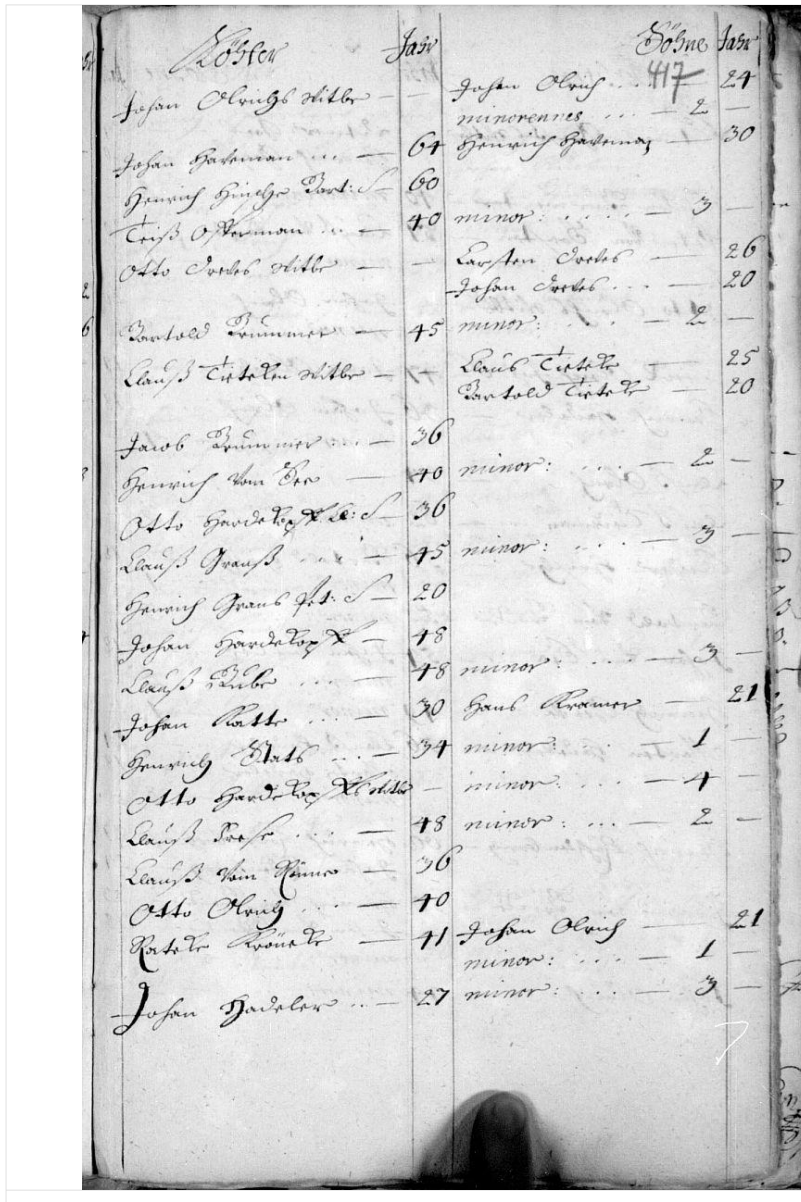 Köhter Jahr Söhne Jahr
417
Johan Olrichs witbe — — Johan Olrich ... — 24
minorennes ... — 2 —
Johan Haveman ... — 64 Henrich Haveman — 30
Henrich Hincke Bart: S — 60
Teiß Osterman ... — 40 minor: .... — 3 —
Otto Dreves witbe — — Carsten Dreves — 26
Johan Dreves .. — 20
Bartold Brummer — 45 minor: ... — 2 —
Clauß Tieteken witbe — Claus Tieteke — 25
Bartold Tieteke — 20
Jacob Brummer .. — 36
Henrich Vom See — 40 minor: .... — 2 —
Otto Hardekopff Cl: S — 36
Clauß Granß ... — 45 minor: .... — 3 —
Henrich Grans Pet: S — 20
Johan Hardekopff — 48
Clauß Rube ... — 48 minor: .... — 3 —
Johan Katte ... — 30 Hans Kramer — 21
Henrich Stats ... — 34 minor: ... — 1 —
Otto Hardekopffs witbe — minor: .... — 4 —
Clauß .... — 48 minor: ... — 2 —
Clauß Vom — 36
Otto Olrich ... — 40
Rateke Kröneke — 41 Johan Olrich — 21
minor: ... — 1 —
Johan Hadeler .. — 27 minor: .... — 3 —